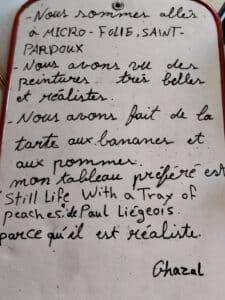 - Nous sommes allés
à MICRO-FOLIE, SAINT-
PARDOUX
- Nous avons vu des
peintures très belles
et réalistes.
- Nous avons fait de la
tarte aux bananes et
aux pommes.
mon tableau préféré est
"Still Life With a Tray of
peaches" de Paul Liégeois.
parce qu'il est réaliste.
Ghazal